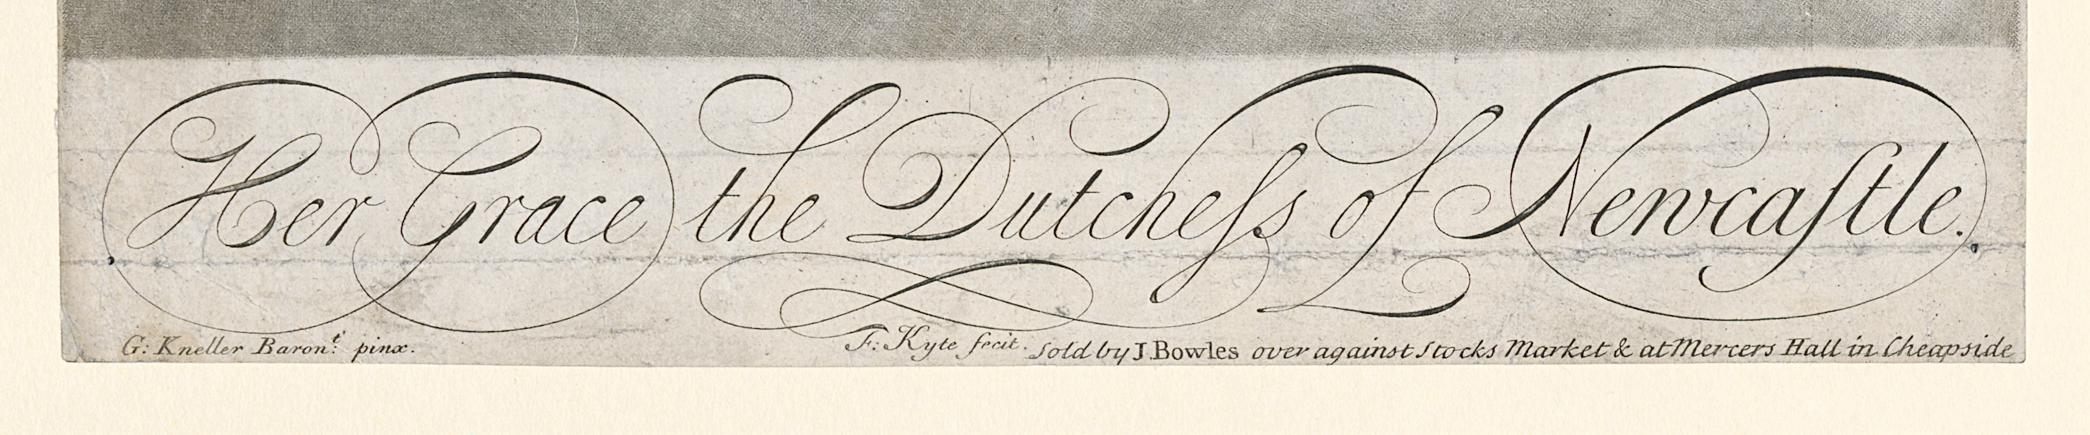 Her Grace the Dutcheſs of Newcaſtle.
G: Kneller Baron:ᵗ pinx. F: Kyte fecit. Sold by J.Bowles over against Stocks Market & at Mercers Hall in Cheapside